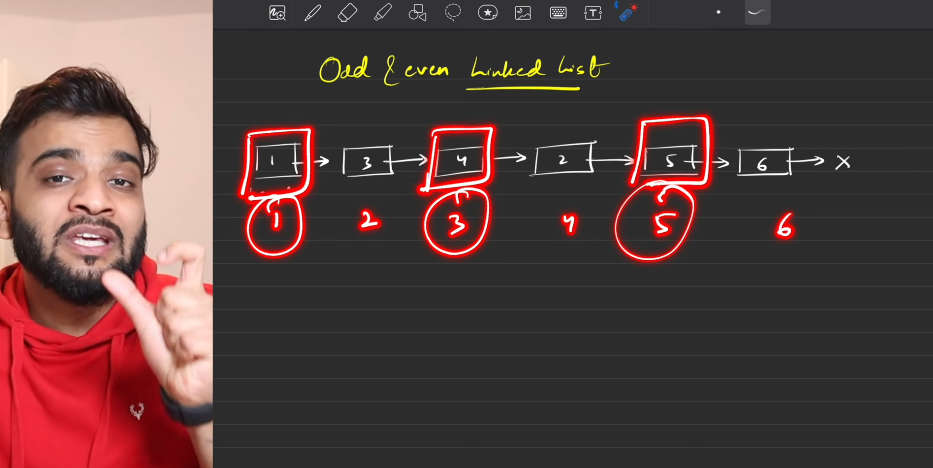 Odd & even Linked List
1 → 3 → 4 → 2 → 5 → 6 → X
1 2 3 4 5 6